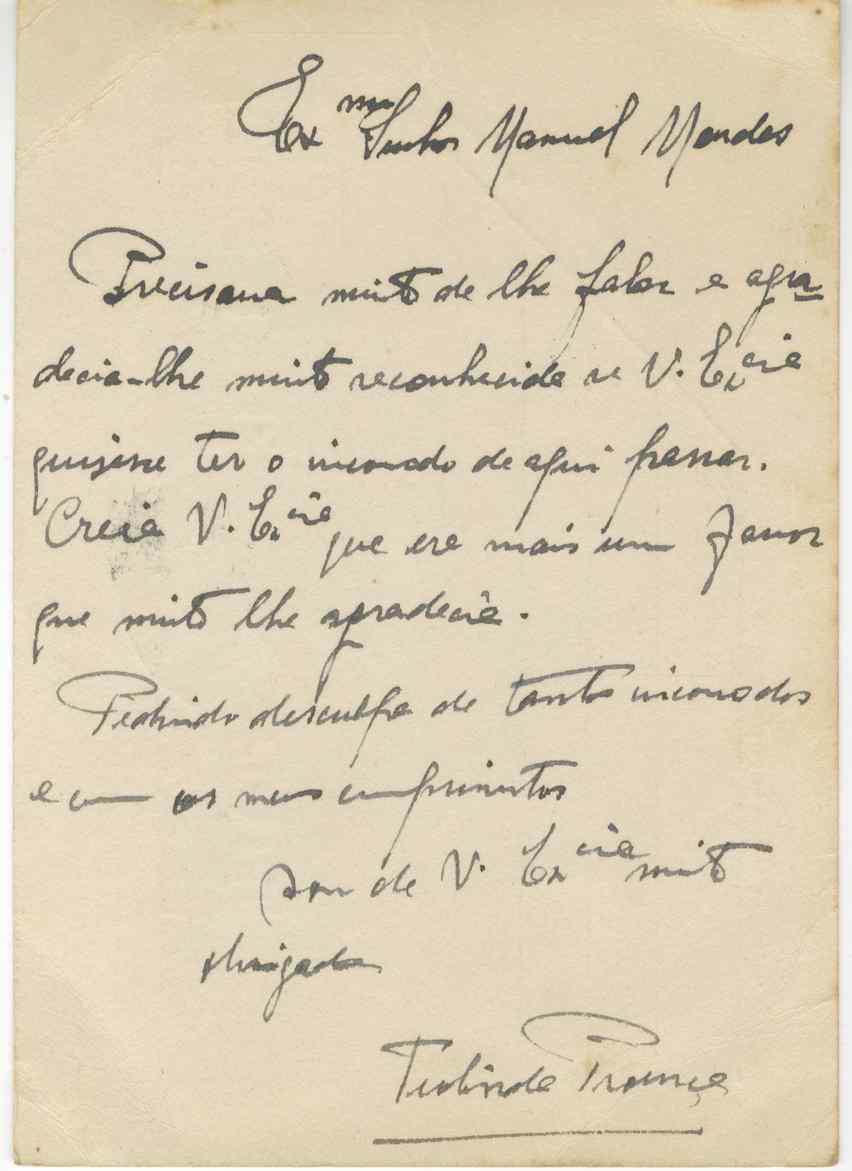 Exmo Senhor Manuel Mendes
Precisava muito de lhe falar e agra-
decia-lhe muito reconhecida se V. Excia
quizesse ter o incomodo de aqui passar.
Creia V. Excia que era mais um favor
que muito lhe agradecia.
Pedindo desculpa de tantos incomodos
e com os meus cumprimentos
sou de V. Excia muito
obrigada
Teolinda